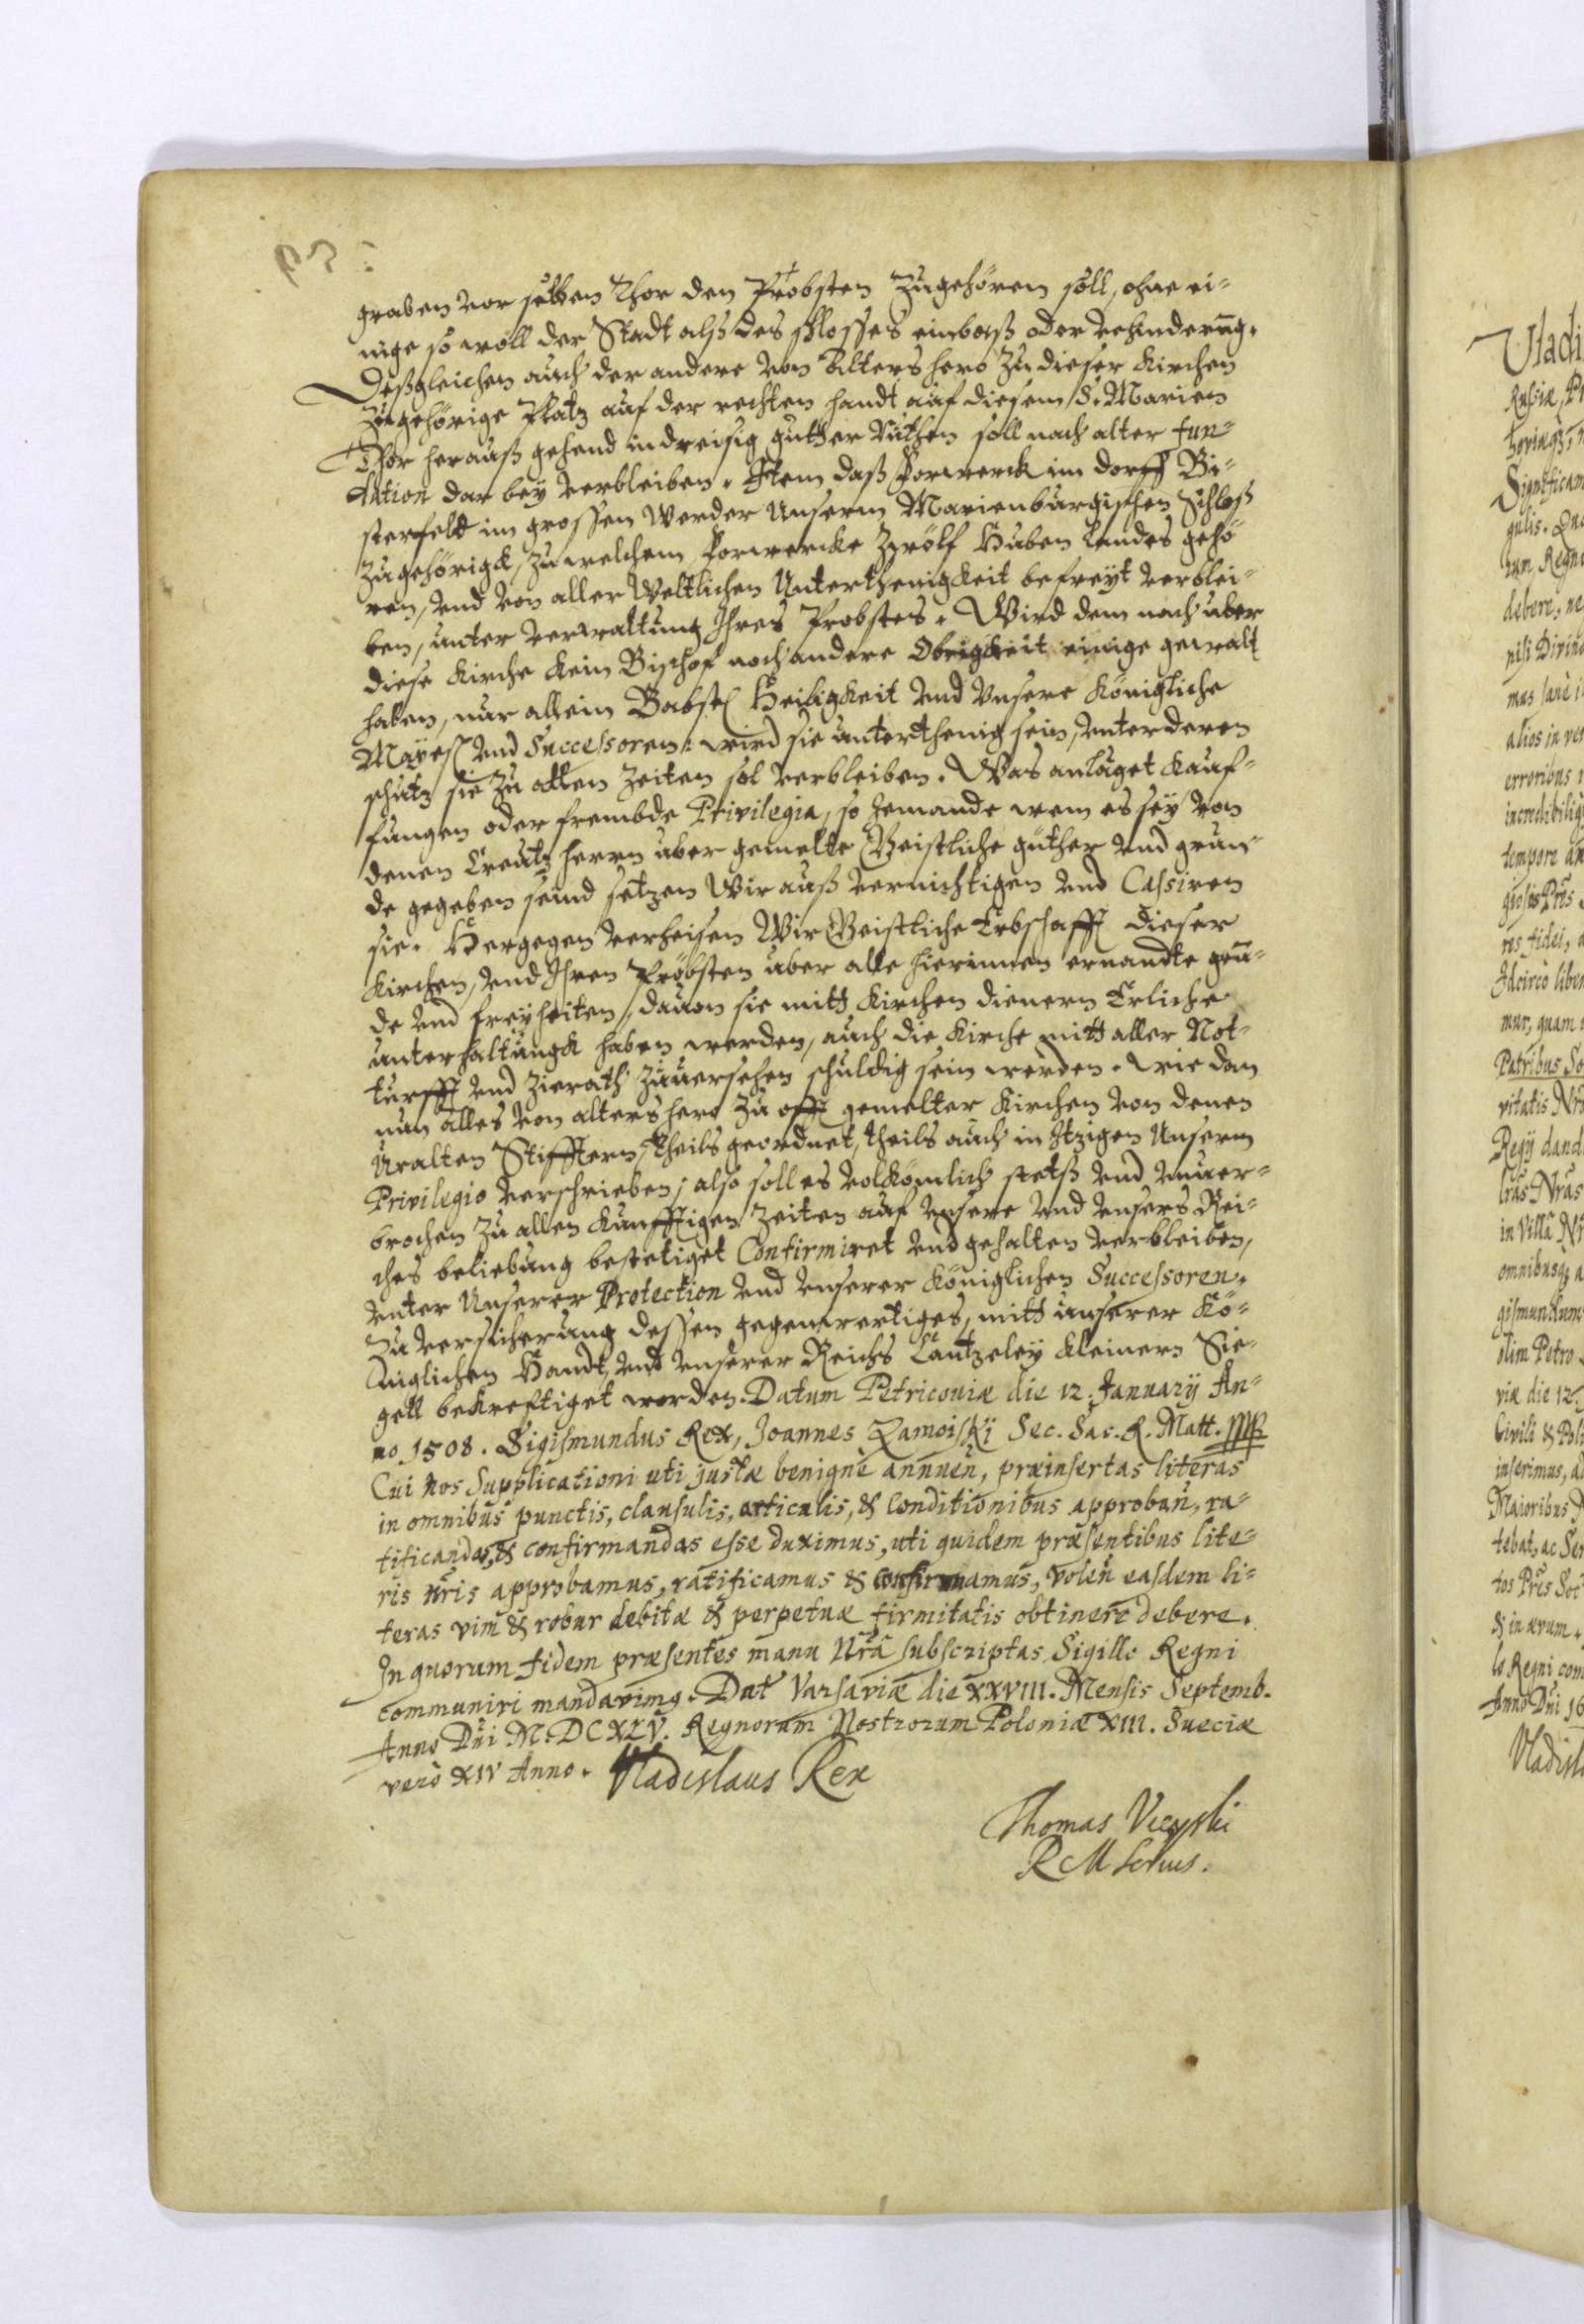 graben vor selben Thor den Probsten zugehören soll, ohne ei-
nige so woll der Stadt alß des schlosses einbaß oder Behinderung.
Deßgleichen auch der andere von Alters hero zu dieser Kirchen
zugehörige Platz auf der rechten handt auf diesem S. Marien
Thor herauß gehend in dreisig gutter Ruthen soll nach alter fun-
dation dar bey verbleiben. Item daß Forwerck im dorff Bi-
sterfeldt im grossen Werder Unserm Marienburgischen Schloß
zugehörigk, zu welchem Forwercke Zwölf Huben landes gehö
ren, vnd von aller Weltlichen Unterthenigkeit befreyt verblei-
ben, unter verwaltung Ihres Probstes. Wird dem nach uber
diese Kirche kein Bischof noch andere Obrigkeit einige gewalt
haben, nur allein Babstl Heiligkeit vnd Vnsere Königliche
Mayest vnd Successoren: wird sie unterthenig sein, vnter deren
schutz sie zu allen Zeiten sol verbleiben. Was anlaget Kauf-
fungen oder frembde Privilegia, so Jemande wem es sey von
denen Creutz herrn uber gemelte Geistliche güther vnd grun-
de gegeben seind setzen Wir auß vernichtigen vnd Cassiren
sie. Hergegen verheisen Wir Geistliche Erbschafft dieser
Kirchen, vnd Ihren Pröbsten uber alle hierinnen ernandte grü-
de vnd freyheiten, dauon sie mitt Kirchen dienern Erliche
unterhaltungk haben werden, auch die Kirche mitt aller Not-
turfft vnd Zierath zuuersehen schuldig sein werden. Wie dan
nun alles von alters hero zu offt gemelter Kirchen von denen
Uralten Stifftern, theils geordnet, theils auch in Itzigen Unserm
Privilegio verschrieben; also soll es volkömlich stetß vnd vnuer-
brochen zu allen Kunfftigen Zeiten auf vnsere vnd vnsers Rei-
ches beliebung bestetiget Confirmiret vnd gehalten verbleiben,
vnter Unserer Protection vnd vnserer Königlichen Successoren.
Zu versicherung dessen gegenwertiges, mitt unserer Kö-
niglichen Handt, vnd vnserer Reichs Cantzeley Kleinern Sie-
gell bekreftiget worden. Datum Petricoviæ die 12. January An-
no 1508. Sigismundus Rex, Joannes Zamoiski Sec. Sac. R. Matt. mp
Cui nos Supplicationi uti justæ benignè annuen, præinsertas literas
in omnibus punctis, clausulis, articulis, & conditionibus approban, ra-
tificandas, & confirmandas esse duximus, uti quidem præsentibus lite-
ris nris approbamus, ratificamus & confirmamus, volen easdem li-
teras vim & robur debitæ & perpetuæ firmitatis obtinere debere.
In quorum fidem præsentes manu Nrâ subscriptas Sigillo Regni
communiri mandavimg. Dat Varsaviæ die XXVIII. Mensis Septemb.
Anno Dni M.DCXLV. Regnorum Nostrorum Poloniæ XIII. Sueciæ
verò XIV Anno. Vladislaus Rex
Thomas
R M
Vladi
Significam
gulis.
debere, ne
nisi Divino
erroribus
tempore
res fidei,
mur, quam
Patribus So
vitatis
Regÿ dand
in Villâ
gismundum
olim Petro
viæ die 12.
inserimus, ad
Maioribus
tebat, ac
& in ævum.
lo Regni com
Anno Dni 16
Vladisl